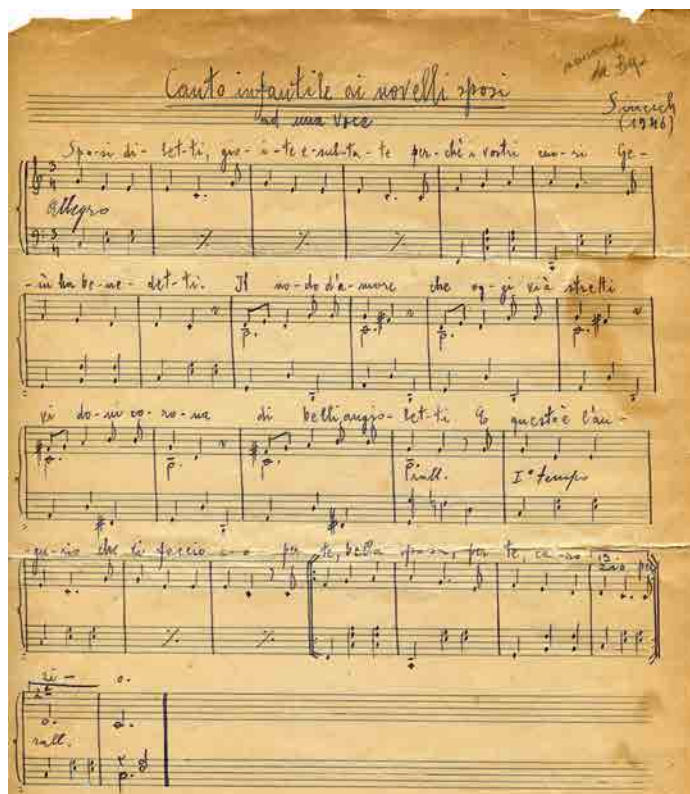 Canto infantile ai novelli sposi
ad una voce
Sincich
(1946)
Spo-si di-let-ti, gio-i-te e-sul-ta-te per-chè i vostri cuo-ri Ge-
Allegro
-sù ha be-ne-det-ti. Il no-do d'a-more che og-gi v'ha stretti
vi do-ni co-ro-na di belli angio-let-ti. E questo è l'au-
rall. Iº tempo
-gu-rio che ti faccio i-o per te, bella sposa, per te, ca-ro
1ª
zio per
zi- o.
2ª
rall.